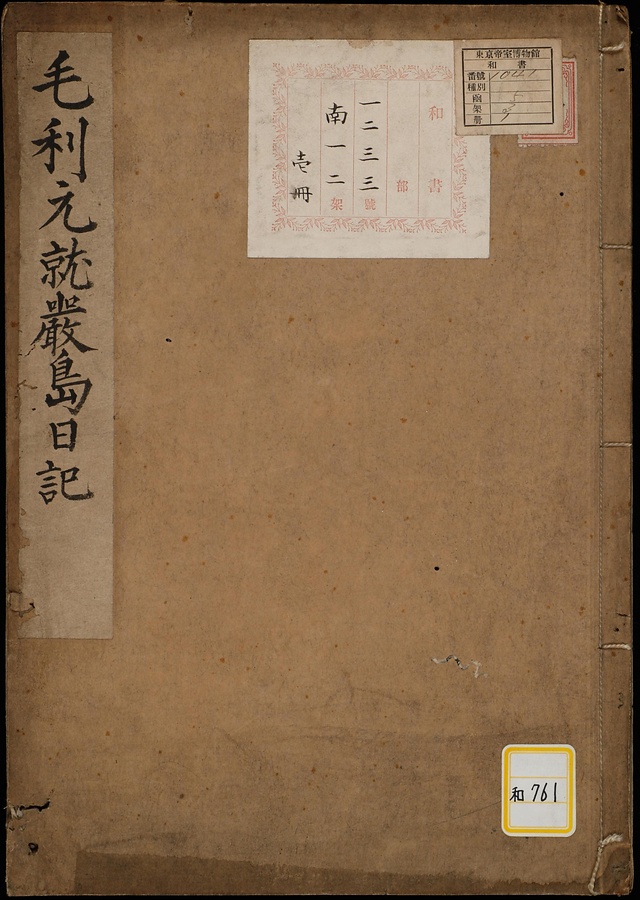 東京帝室博物館
和書
番號 1041
種別
函 5
架
册
和書
部
一二三三號
南一二架
壱冊
毛利元就嚴島日記
和761